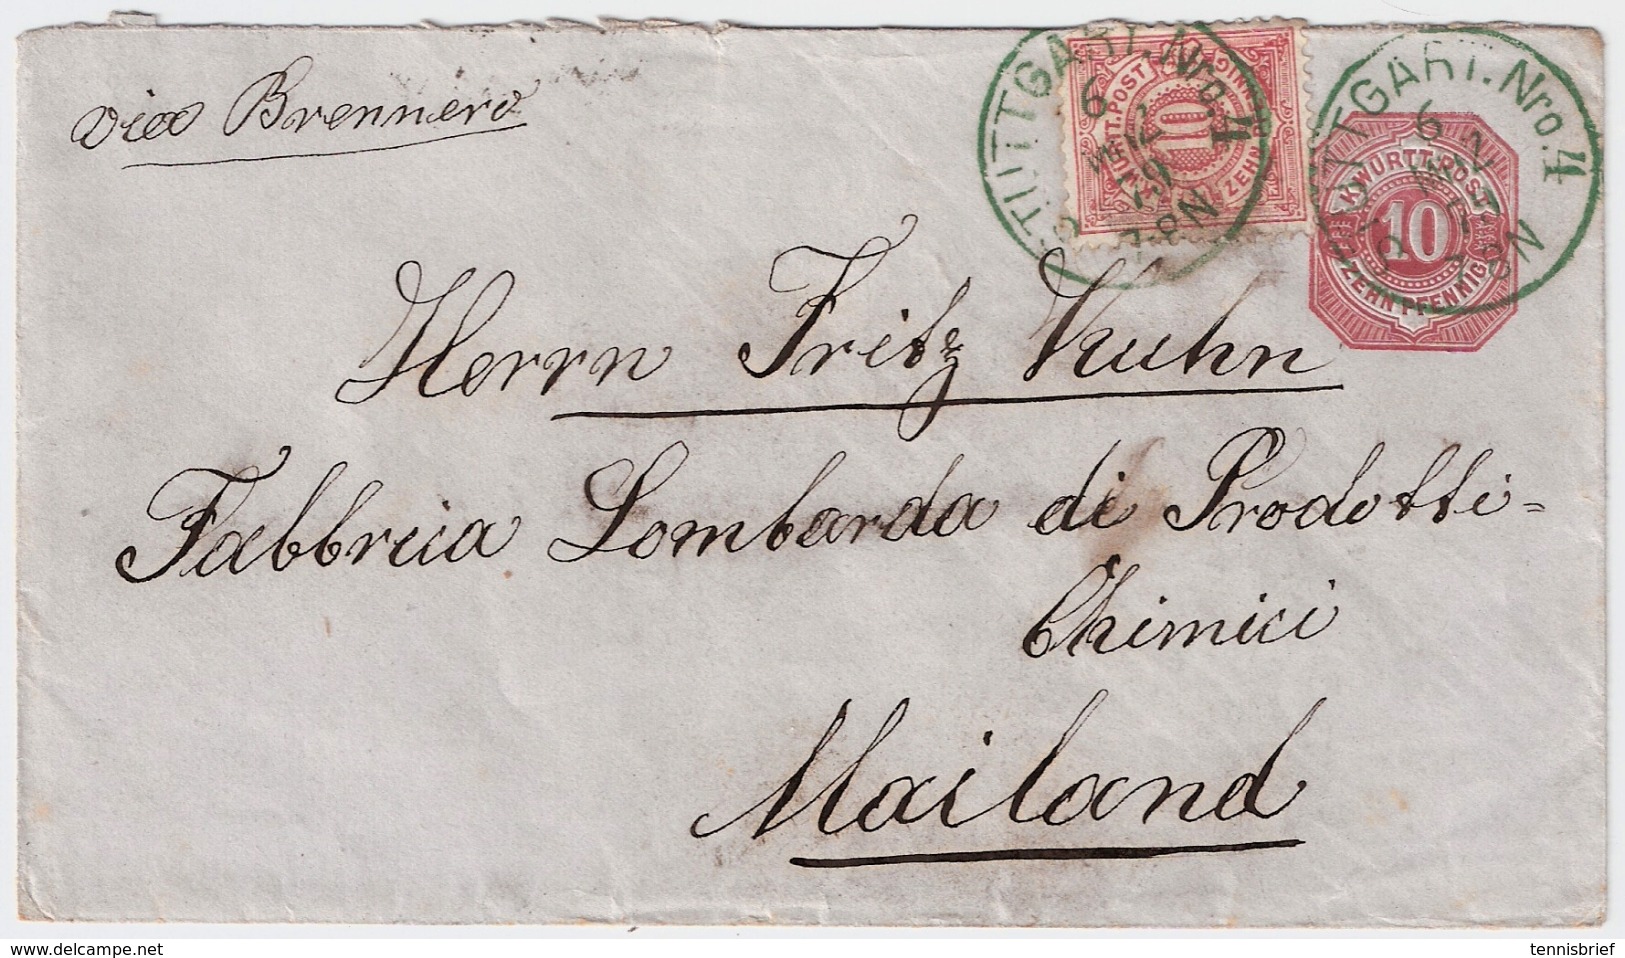 via Brennero
STUTTGART. Nro. 4
K. WÜRTT. POST
10
ZEHN PFENNIG
STUTTGART. Nro. 4
K. WÜRTT. POST
10
ZEHN PFENNIG
Herrn Fritz Kuhn
Fabbrica Lombarda di Prodotti=
Chimici
Mailand
www.delcampe.net
tennisbrief